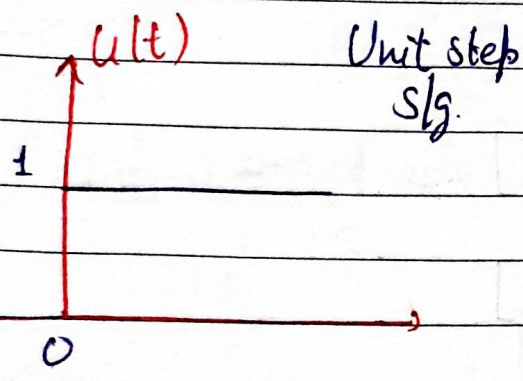 U(t)
Unit step
sig.
1
0